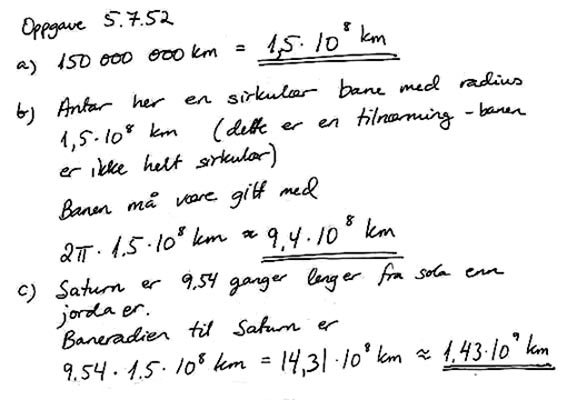 Oppgave 5.7.52
a) 150 000 000 km = 1,5 · 10⁸ km
b) Antar her en sirkulær bane med radius
1,5 · 10⁸ km (dette er en tilnærming - banen
er ikke helt sirkulær)
Banen må være gitt med
2π · 1,5 · 10⁸ km ≈ 9,4 · 10⁸ km
c) Saturn er 9,54 ganger lenger fra sola enn
jorda er.
Baneradien til Saturn er
9.54 · 1.5 · 10⁸ km = 14,31 · 10⁸ km ≈ 1,43 · 10⁹ km